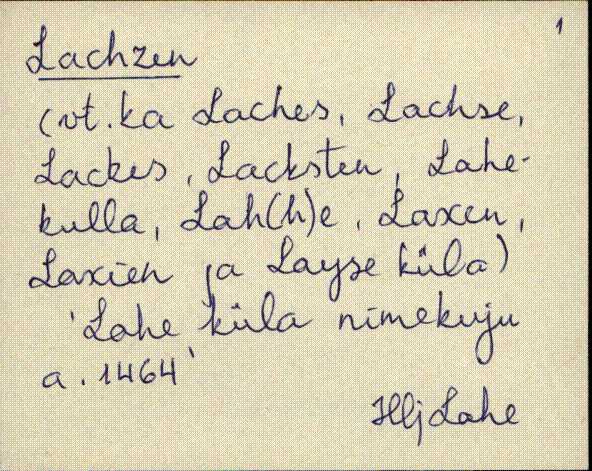 1
Lachzen
(vt. ka Laches, Lachse,
Lackes, Lacksten, Lahe-
kulla, Lah(h)e, Laxen,
Laxien ja Layse küla)
'Lahe küla nimekuju
a. 1464'
HljLahe